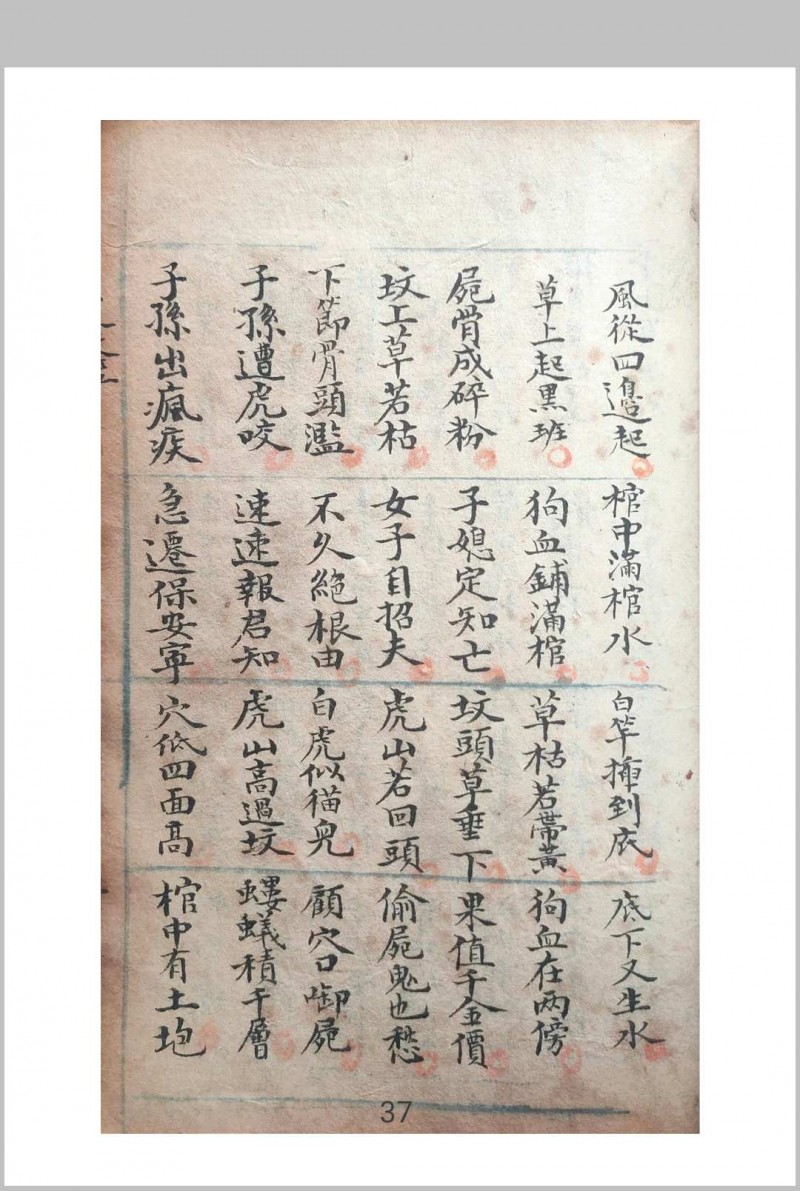 風從四邉起 棺中滿棺水 白竿揷到底 底下又生水
草上起黒班 狗血鋪滿棺 草枯若帶黃 狗血在两傍
屍骨成碎粉 子媳定知亡 坟頭草垂下 果值千金價
坟上草若枯 女子自招夫 虎山若回頭 偷屍鬼也愁
下節骨頭濫 不久絶根由 白虎似猫兒 顧穴口啣屍
子孫遭虎咬 速速報君知 虎山高過坟 螻蟻積千層
子孫出瘋疾 急遷保安寕 穴低四面高 棺中有土
37